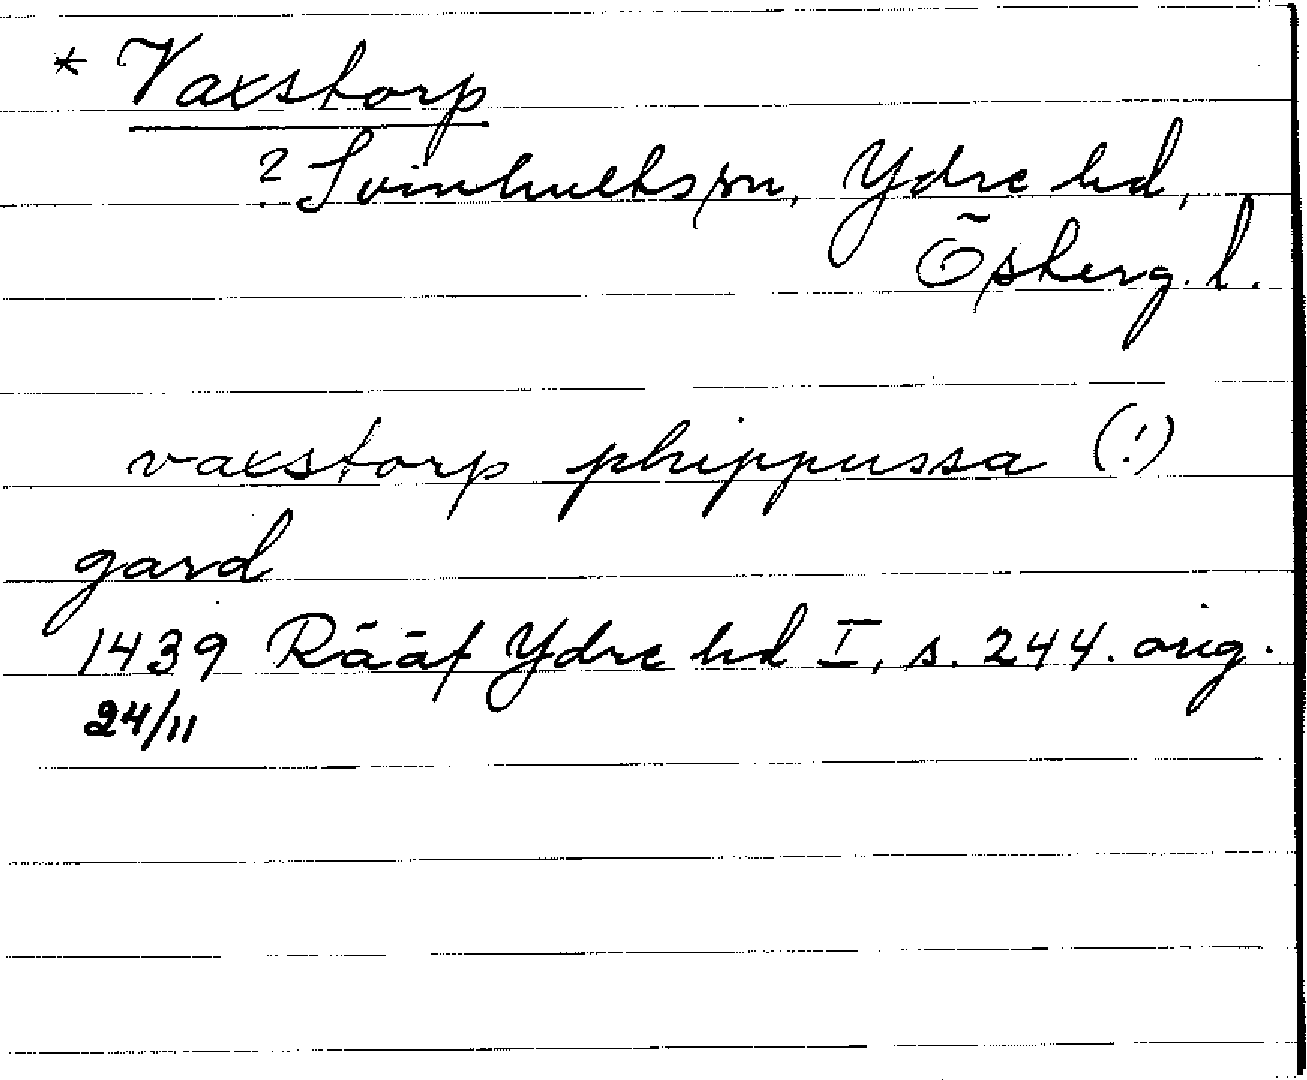 * Vaxstorp
? Svinhults sn, Ydre hd,
Österg. l.
vaxstorp phippussa (!)
gard
1439 Rääf Ydre hd I, s. 244. orig.
24/11